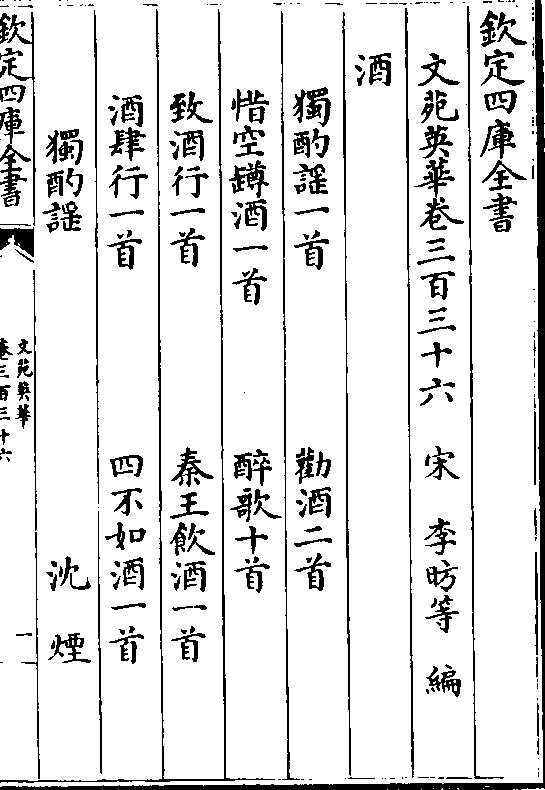 欽定四庫全書
文苑英華卷三百三十六 宋 李昉等 編
酒
獨酌謡一首 勸酒二首
惜空罇酒一首 醉歌十首
致酒行一首 秦王飲酒一首
酒肆行一首 四不如酒一首
獨酌謡 沈煙
欽定四庫全書
文苑英華
卷三百三十六
一